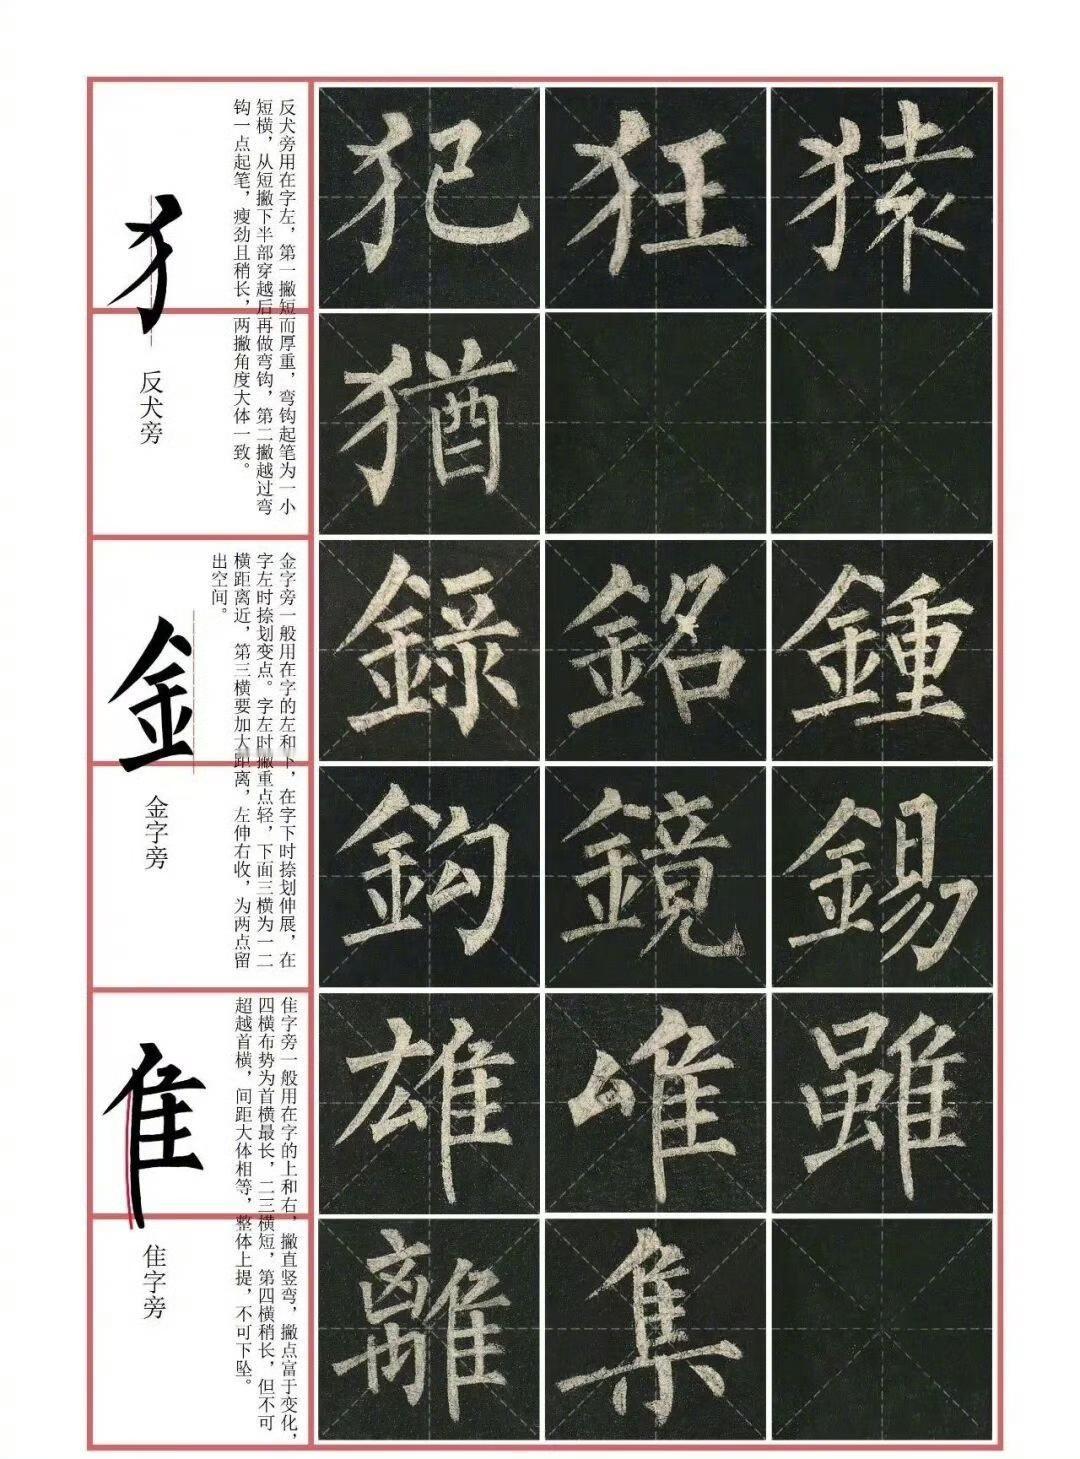 犭
反犬旁
反犬旁用在字左，第一撇短而厚重，弯钩起笔为一小
短横，从短撇下半部穿越后再做弯钩，第二撇越过弯
钩一点起笔，瘦劲且稍长，两撇角度大体一致。
犯 狂 猿
猶
釒
金字旁
金字旁一般用在字的左和下，在字下时捺划伸展，在
字左时捺划变点。字左时撇重点轻，下面三横为一二
横距离近，第三横要加大距离，左伸右收，为两点留
出空间。
録 銘 鍾
鈎 鏡 錫
隹
隹字旁
隹字旁一般用在字的上和右，撇直竖弯，撇点富于变化，
四横布势为首横最长，二三横短，第四横稍长，但不可
超越首横，间距大体相等，整体上提，不可下坠。
雄 唯 雖
離 集